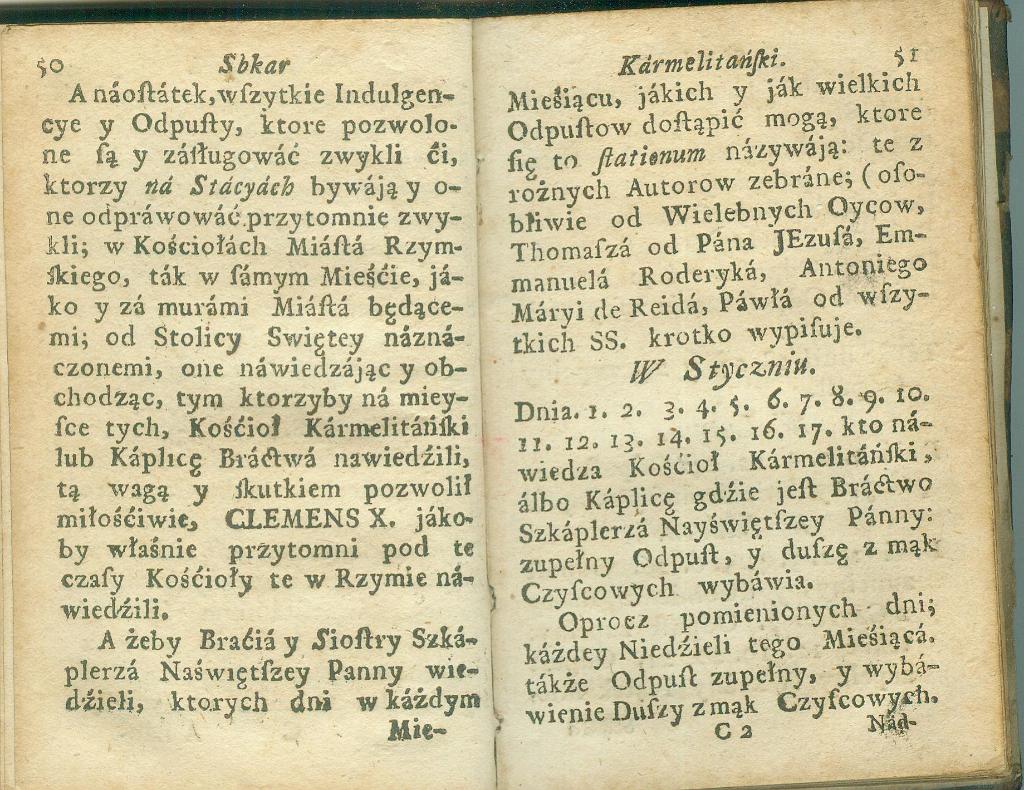 50 Sbkar
A náoſtátek,wſzytkie Indulgen-
cye y Odpuſty, ktore pozwolo-
ne ſą y záſługowáć zwykli ći,
ktorzy ná Stácyách bywáją y o-
ne odpráwowáć przytomnie zwy-
kli; w Kośćiołách Miáſtá Rzym-
ſkiego, ták w ſámym Mieśćie, já-
ko y zá murámi Miáſtá będące-
mi; od Stolicy Swiętey názná-
czonemi, one náwiedzájąc y ob-
chodząc, tym ktorzyby ná miey-
ſce tych, Kośćioł Kármelitáńſki
lub Káplicę Bráctwá nawiedźili,
tą wagą y ſkutkiem pozwolił
miłośćiwie, CLEMENS X. jáko-
by właśnie przytomni pod te
czaſy Kośćioły te w Rzymie ná-
wiedźili.
A żeby Braćiá y Sioſtry Szká-
plerzá Naświętſzey Panny wie-
dźieli, ktorych dni w káżdym
Mie-
Kármelitańſki. 51
Mieśiącu, jákich y ják wielkich
Odpuſtow doſtąpić mogą, ktore
ſię to ſtationum názywáją: te z
rożnych Autorow zebráne; (oſo-
bliwie od Wielebnych Oycow,
Thomaſzá od Pána JEzuſá, Em-
manuelá Roderyká, Antoniego
Máryi de Reidá, Páwłá od wſzy-
tkich SS. krotko wypiſuje.
W Styczniu.
Dnia. 1. 2. 3. 4. 5. 6. 7. 8. 9. 10.
11. 12. 13. 14. 15. 16. 17. kto ná-
wiedza Kośćioł Kármelitáńſki,
álbo Káplicę gdźie jeſt Bráctwo
Szkáplerzá Nayświętſzey Pánny:
zupełny Odpuſt, y duſzę z mąk
Czyſcowych wybáwia.
Oprocz pomienionych dni;
káżdey Niedźieli tego Mieśiącá.
tákże Odpuſt zupełny, y wybá-
wienie Duſzy z mąk Czyſcowych.
C 2 Nád-